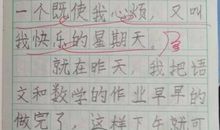 一个既使我心烦，又叫
我快乐的星期天。
就在昨天，我把语
文和数学的作业早早的
做完了，这样下午就可